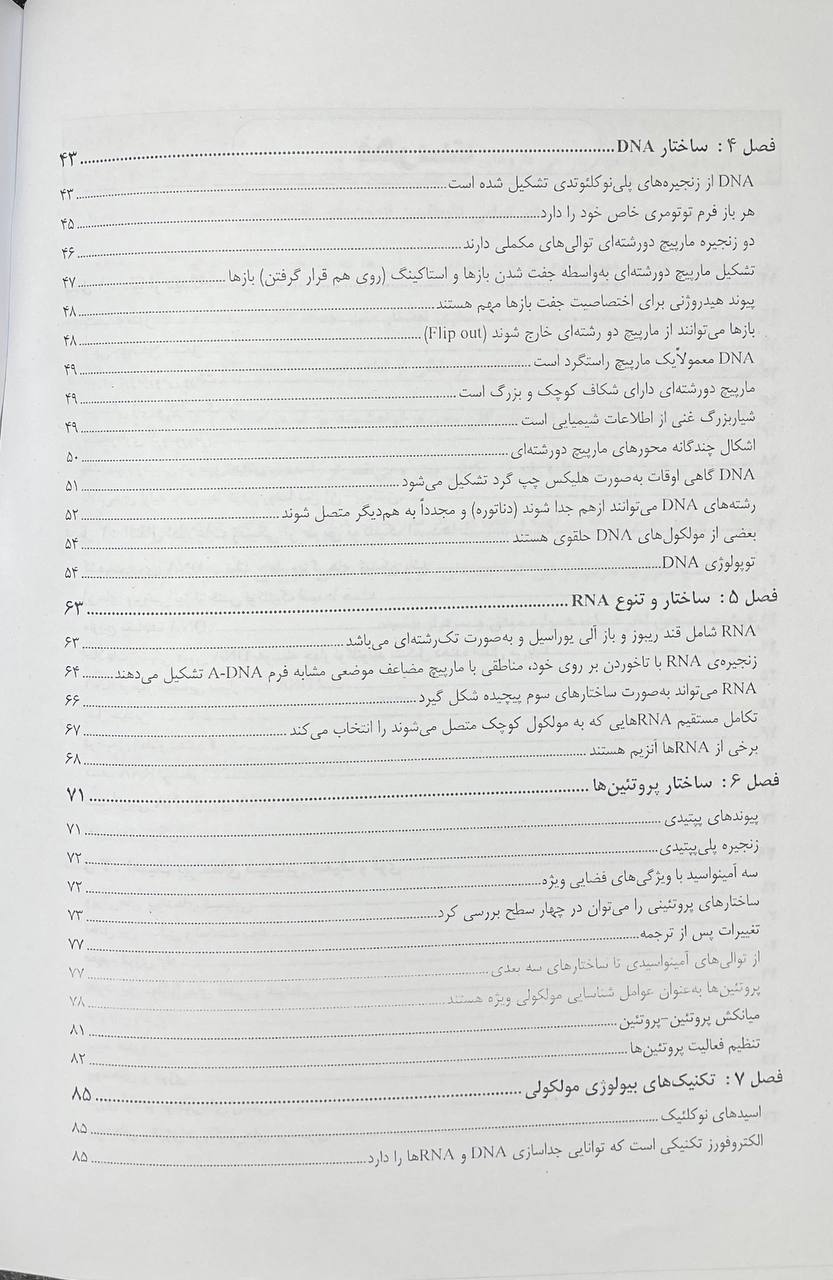 فصل ۴: ساختار DNA ........ ۴۳
DNA از زنجیره‌های پلی‌نوکلئوتدی تشکیل شده است ........ ۴۳
هر باز فرم توتومری خاص خود را دارد ........ ۴۵
دو زنجیره مارپیچ دورشته‌ای توالی‌های مکملی دارند ........ ۴۶
تشکیل مارپیچ دورشته‌ای به‌واسطه جفت شدن بازها و استاکینگ (روی هم قرار گرفتن) بازها ........ ۴۷
پیوند هیدروژنی برای اختصاصیت جفت بازها مهم هستند ........ ۴۸
بازها می‌توانند از مارپیچ دو رشته‌ای خارج شوند (Flip out) ........ ۴۸
DNA معمولاًیک مارپیچ راستگرد است ........ ۴۹
مارپیچ دورشته‌ای دارای شکاف کوچک و بزرگ است ........ ۴۹
شیاربزرگ غنی از اطلاعات شیمیایی است ........ ۴۹
اشکال چندگانه محورهای مارپیچ دورشته‌ای ........ ۵۰
DNA گاهی اوقات به‌صورت هلیکس چپ گرد تشکیل می‌شود ........ ۵۱
رشته‌های DNA می‌توانند ازهم جدا شوند (دناتوره) و مجدداً به هم‌دیگر متصل شوند ........ ۵۲
بعضی از مولکول‌های DNA حلقوی هستند ........ ۵۴
توپولوژی DNA ........ ۵۴
فصل ۵: ساختار و تنوع RNA ........ ۶۳
RNA شامل قند ریبوز و باز آلی یوراسیل و به‌صورت تک‌رشته‌ای می‌باشد ........ ۶۳
زنجیره‌ی RNA با تاخوردن بر روی خود، مناطقی با مارپیچ مضاعف موضعی مشابه فرم A-DNA تشکیل می‌دهند ........ ۶۴
RNA می‌تواند به‌صورت ساختارهای سوم پیچیده شکل گیرد ........ ۶۶
تکامل مستقیم RNAهایی که به مولکول کوچک متصل می‌شوند را انتخاب می‌کند ........ ۶۷
برخی از RNAها آنزیم هستند ........ ۶۸
فصل ۶: ساختار پروتئین‌ها ........ ۷۱
پیوندهای پپتیدی ........ ۷۱
زنجیره پلی‌پپتیدی ........ ۷۲
سه آمینواسید با ویژگی‌های فضایی ویژه ........ ۷۲
ساختارهای پروتئینی را می‌توان در چهار سطح بررسی کرد ........ ۷۳
تغییرات پس از ترجمه ........ ۷۷
از توالی‌های آمینواسیدی تا ساختارهای سه بعدی ........ ۷۷
پروتئین‌ها به‌عنوان عوامل شناسایی مولکولی ویژه هستند ........ ۷۸
میانکش پروتئین-پروتئین ........ ۸۱
تنظیم فعالیت پروتئین‌ها ........ ۸۲
فصل ۷: تکنیک‌های بیولوژی مولکولی ........ ۸۵
اسیدهای نوکلئیک ........ ۸۵
الکتروفورز تکنیکی است که توانایی جداسازی DNA و RNAها را دارد ........ ۸۵